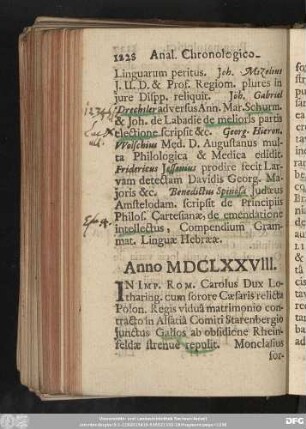 1228 Anal. Chronologico-
Linguarum peritus. Joh. Mizelius
J. U. D. & Prof. Regiom. plures in
jure Dispp. reliquit. Joh. Gabriel
Drechsler adversus Ann. Mar. Schurm.
& Joh. de Labadie de melioris partis
electione scripsit &c. Georg. Hieron.
Welschius Med. D. Augustanus mul-
ta Philologica & Medica edidit.
Fridericus Jessenius prodire fecit Lar-
vam detectam Davidis Georg. Ma-
joris &c. Benedictus Spinosa Judæus
Amstelodam. scripsit de Principiis
Philos. Cartesianæ, de emendatione
intellectus, Compendium Gram-
mat. Linguæ Hebrææ.
Anno MDCLXXVIII.
IN IMP. ROM. Carolus Dux Lo-
tharing. cum sorore Cæsaris relicta
Polon. Regis viduâ matrimonio con-
tracto in Alsatiâ Comiti Starenbergio
junctus Gallos ab obsidione Rhein-
feldæ strenue repulit. Monclasius
for-